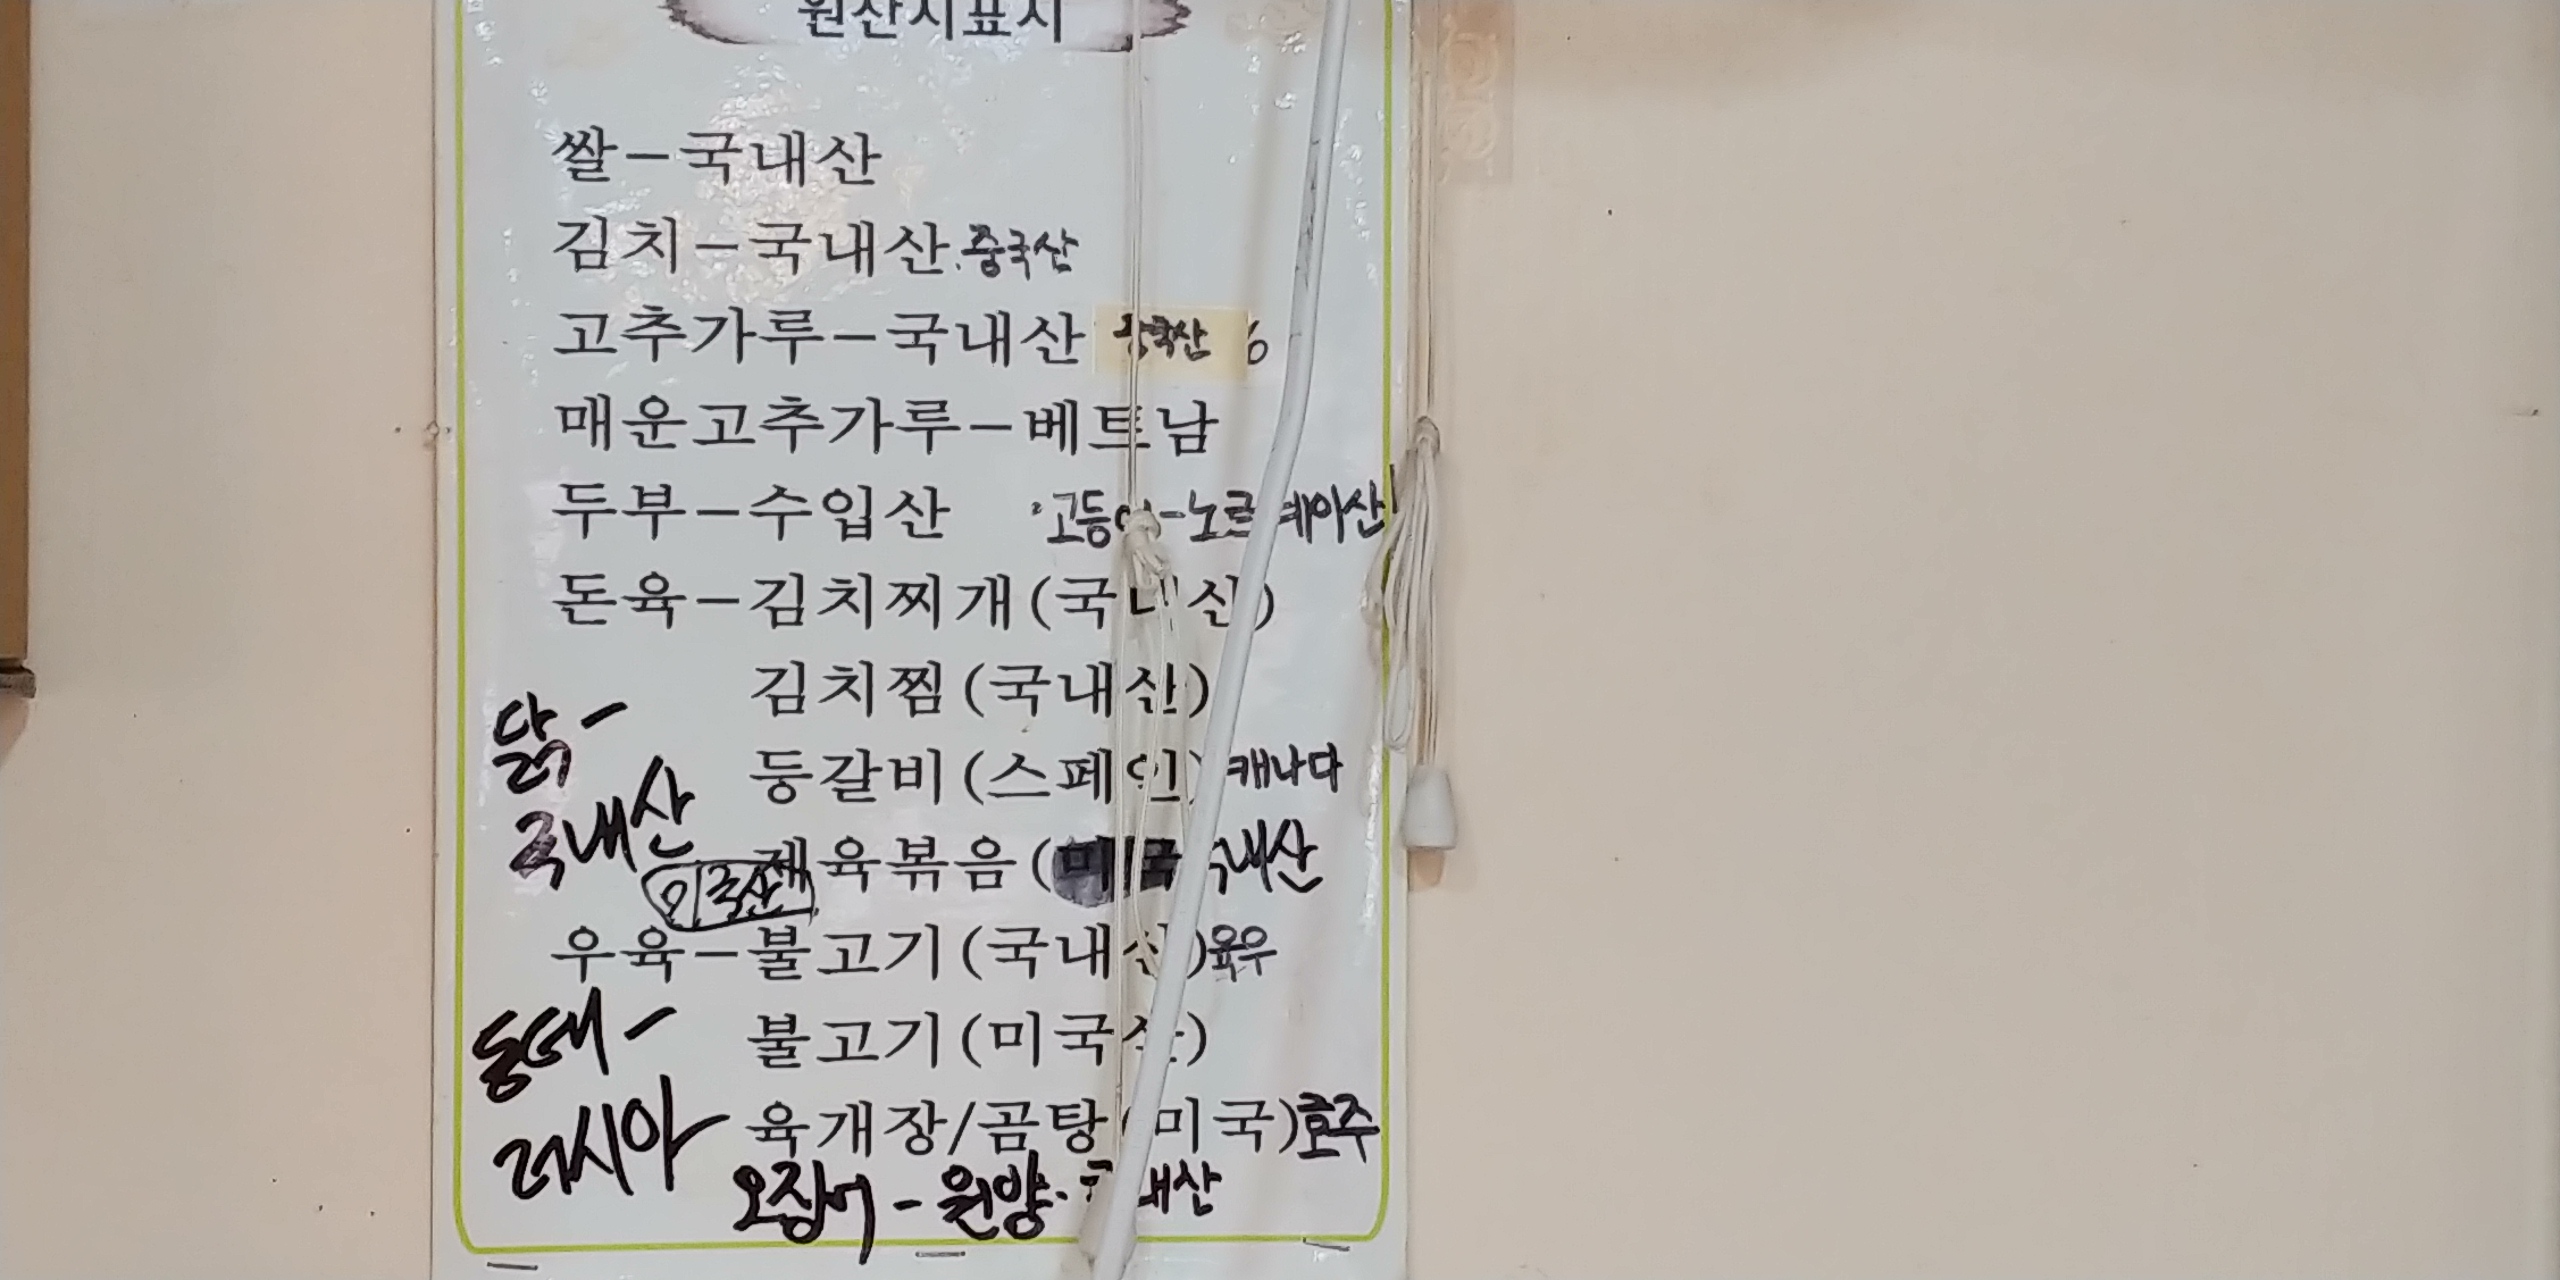 원산지표시
쌀-국내산
김치-국내산.중국산
고추가루-국내산 중국산
매운고추가루-베트남
두부-수입산 ·고등어-노르웨이산
돈육-김치찌개(국내산)
김치찜(국내산)
닭-
국내산
등갈비(스페인)캐나다
제육볶음(미국 국내산
우육-불고기(국내산)육우
동태-
러시아
불고기(미국산)
육개장/곰탕(미국)호주
오징어-원양·국내산